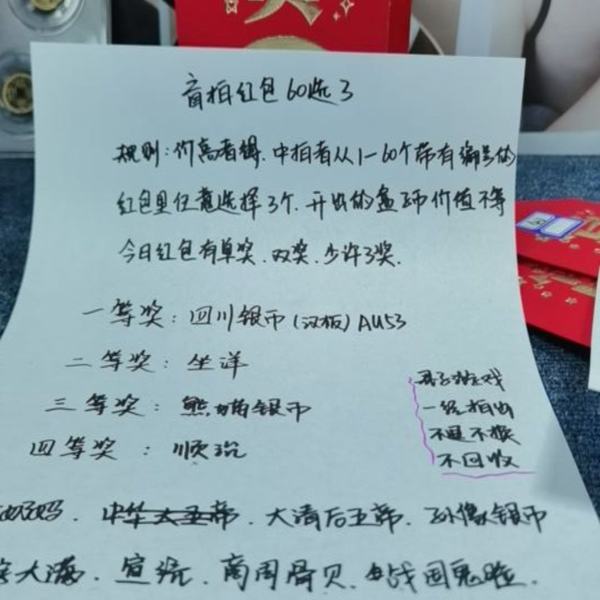 盲拍红包60选3
规则:价高者得.中拍者从1-60个带有编号的
红包里任意选择3个.开出的盒币价值不等
今日红包有单奖.双奖.少许3奖.
一等奖:四川银币(汉板)AU53
二等奖:坐洋
三等奖:熊猫银币
四等奖:顺治
君子游戏
一经拍出
不退不换
不回收
大清后五帝.孙像银币
大海.宣统.商周骨贝.战国鬼脸.